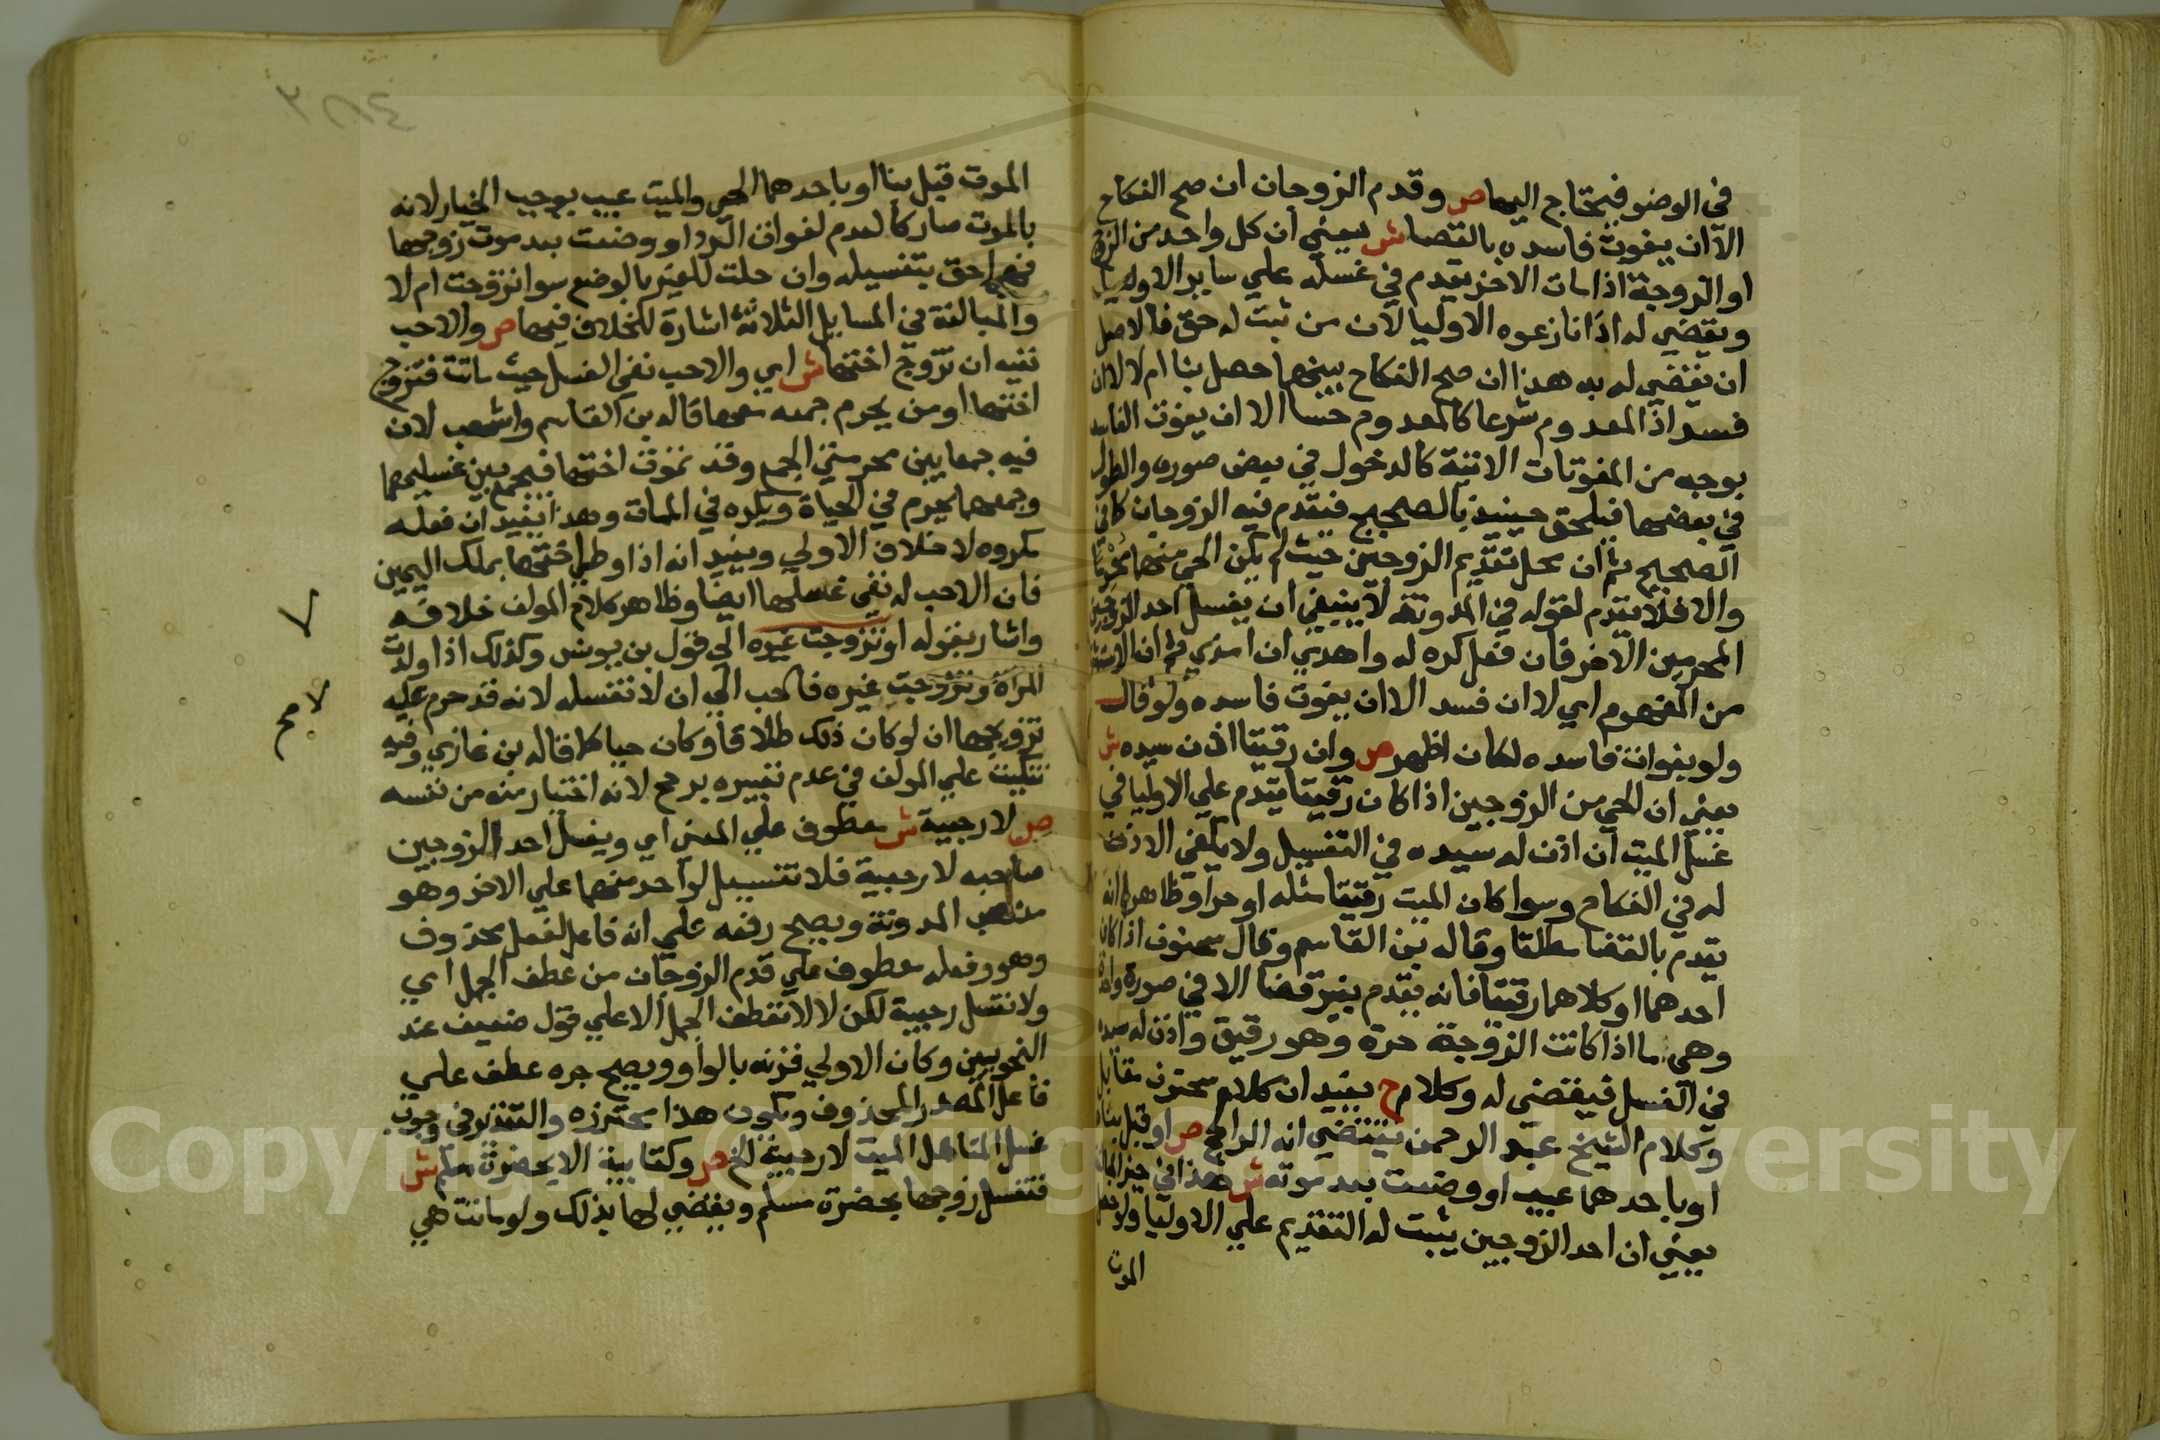 في الوضو فيحتاج اليها ص وقدم الزوجان ان صح النكاح
الا ان يفوت فاسده بالقضا ش يعني ان كل واحد من الزوج
او الزوجة اذا مات الاخر يقدم في غسله علي ساير الاوليا
ويقضي له اذا نازعوه الاوليا لان من ثبت له حق فالاصل
ان يقضي له به هذا ان صح النكاح بينهما حصل بنا ام لا لا ان
فسد اذ المعدوم شرعا كالمعدوم حسا الا ان يفوت الفاسد
بوجه من المفوتات الاتية كالدخول في بعض صوره والطول
في بعضها فيلحق حينيذ بالصحيح فيقدم فيه الزوجان كما في
الصحيح ثم ان محل تقديم الزوجين حيث لم يكن الحي منهما محرما
والا فلا يقدم لقوله في المدونة لا ينبغي ان يغسل احد الزوجين
المحرمين الاخر فان فعل كره له واهدي ان امذي ثم ان الاستثنا
من المفهوم اي لا ان فسد الا ان يفوت فاسده ولو قال
ولو بفوات فاسده لكان اظهر ص وان رقيقا اذن سيده ش
يعني ان الحي من الزوجين اذا كان رقيقا يقدم علي الاوليا في
غسل الميت ان اذن له سيده في التغسيل ولا يكفي الاذن
له في النكاح وسوا كان الميت رقيقا مثله او حرا وظاهره انه
يقدم بالقضا مطلقا وقاله بن القاسم وقال سحنون اذا كان
احدهما او كلاهما رقيقا فانه يقدم بغير قضا الا في صورة واحدة
وهي ما اذا كانت الزوجة حرة وهو رقيق واذن له سيده
في الغسل فيقضي له وكلام ح يفيد ان كلام سحنون مقابل
وكلام الشيخ عبد الرحمن يقتضي انه الراجح ص او قبل بنا
او باحدهما عيب او وضعت بعد موته ش هذا في حيز المبالغة
يعني ان احد الزوجين يثبت له التقديم علي الاوليا ولو حصل
الموت
٣٨٤
الموت قبل بنا او باحدهما الحي والميت عيب يوجب الخيار لانه
بالموت صار كالعدم لفوات الرد او وضعت بعد موت زوجها
فهي احق بتغسيله وان حلت للغير بالوضع سوا تزوجت ام لا
والمبالغة في المسايل الثلاثة اشارة للخلاف فيها ص والاحب
نفيه ان تزوج اختها ش اي والاحب نفي الغسل حيث ماتت فتزوج
اختها او من يحرم جمعه معها قاله بن القاسم واشهب لان
فيه جمعا بين محرمتي الجمع وقد تموت اختها فيجمع بين غسليهما
وجمعهما يحرم في الحياة ويكره في الممات وهذا يفيد ان فعله
مكروه لا خلاف الاولي ويفيد انه اذا وطي اختها بملك اليمين
فان الاحب له نفي غسلها ايضا وظاهر كلام المولف خلافه
واشار بقوله او تزوجت غيره الي قول بن يونس وكذلك اذا ولدت
المراة وتزوجت غيره فاحب الي ان لا تغسله لانه قد حرم عليه
تزويجها ان لو كان ذلك طلاقا وكان حيا كما قاله بن غازي وفيه
تنكيت علي المولف في عدم تعبيره برجح لانه اختيار منه من نفسه
ص لا رجعية ش معطوف علي المعني اي ويغسل احد الزوجين
صاحبه لا رجعية فلا تغسيل لواحد منهما علي الاخر وهو
مذهب المدونة ويصح رفعه علي انه فاعل لفعل محذوف
وهو وفعله معطوف علي قدم الزوجان من عطف الجمل اي
ولا تغسل رجعية لكن لا لا تعطف الجمل الا علي قول ضعيف عند
النحويين وكان الاولي قرنه بالواو ويصح جره عطف علي
فاعل المصدر المحذوف ويكون هذا محترزه والتقدير في وجوب
غسل المتاهل الميت لا رجعية الخ ص وكتابية الا بحضرة مسلم ش
فتغسل زوجها بحضرة مسلم ويقضي لها بذلك ولو ماتت هي
Copyright © King Saud University